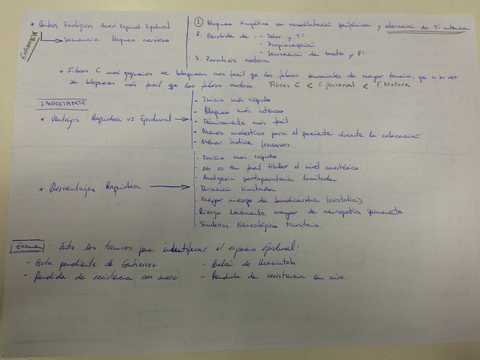 EXAMEN
Bloqueo Simpático con vasodilatación periférica y alteración de Tª cutánea
Secuencia bloqueo nervioso
2. Pérdida de: - Dolor y Tª
- Propiocepción
- Sensación de tacto y P
3. Parálisis motora
* Fibras C más pequeñas se bloquean más fácil que las fibras sensoriales de mayor tamaño, que a su vez
se bloquean más fácil que las fibras motoras Fibras C < F. sensorial < F. Motora
IMPORTANTE
- Inicio más rápido
- Bloqueo más intenso
* Ventajas Raquídea vs Epidural
- Técnicamente más fácil
- Menos molestias para el paciente durante la colocación
- Menor índice fracasos
- Inicio más rápido
- No es tan fácil titular el nivel anestésico
- Analgesia postoperatoria limitada
* Desventajas Raquídea
- Duración limitada
- Mayor riesgo de bradicardia (asistolia)
- Riesgo levemente mayor de neuropatía permanente
- Síndrome Neurológico transitorio
Examen: Cuáles son técnicas para identificar el espacio Epidural:
- Gota pendiente de Gutiérrez - Balón de Macintosh
- Pérdida de resistencia con suero - Pérdida de resistencia con aire.